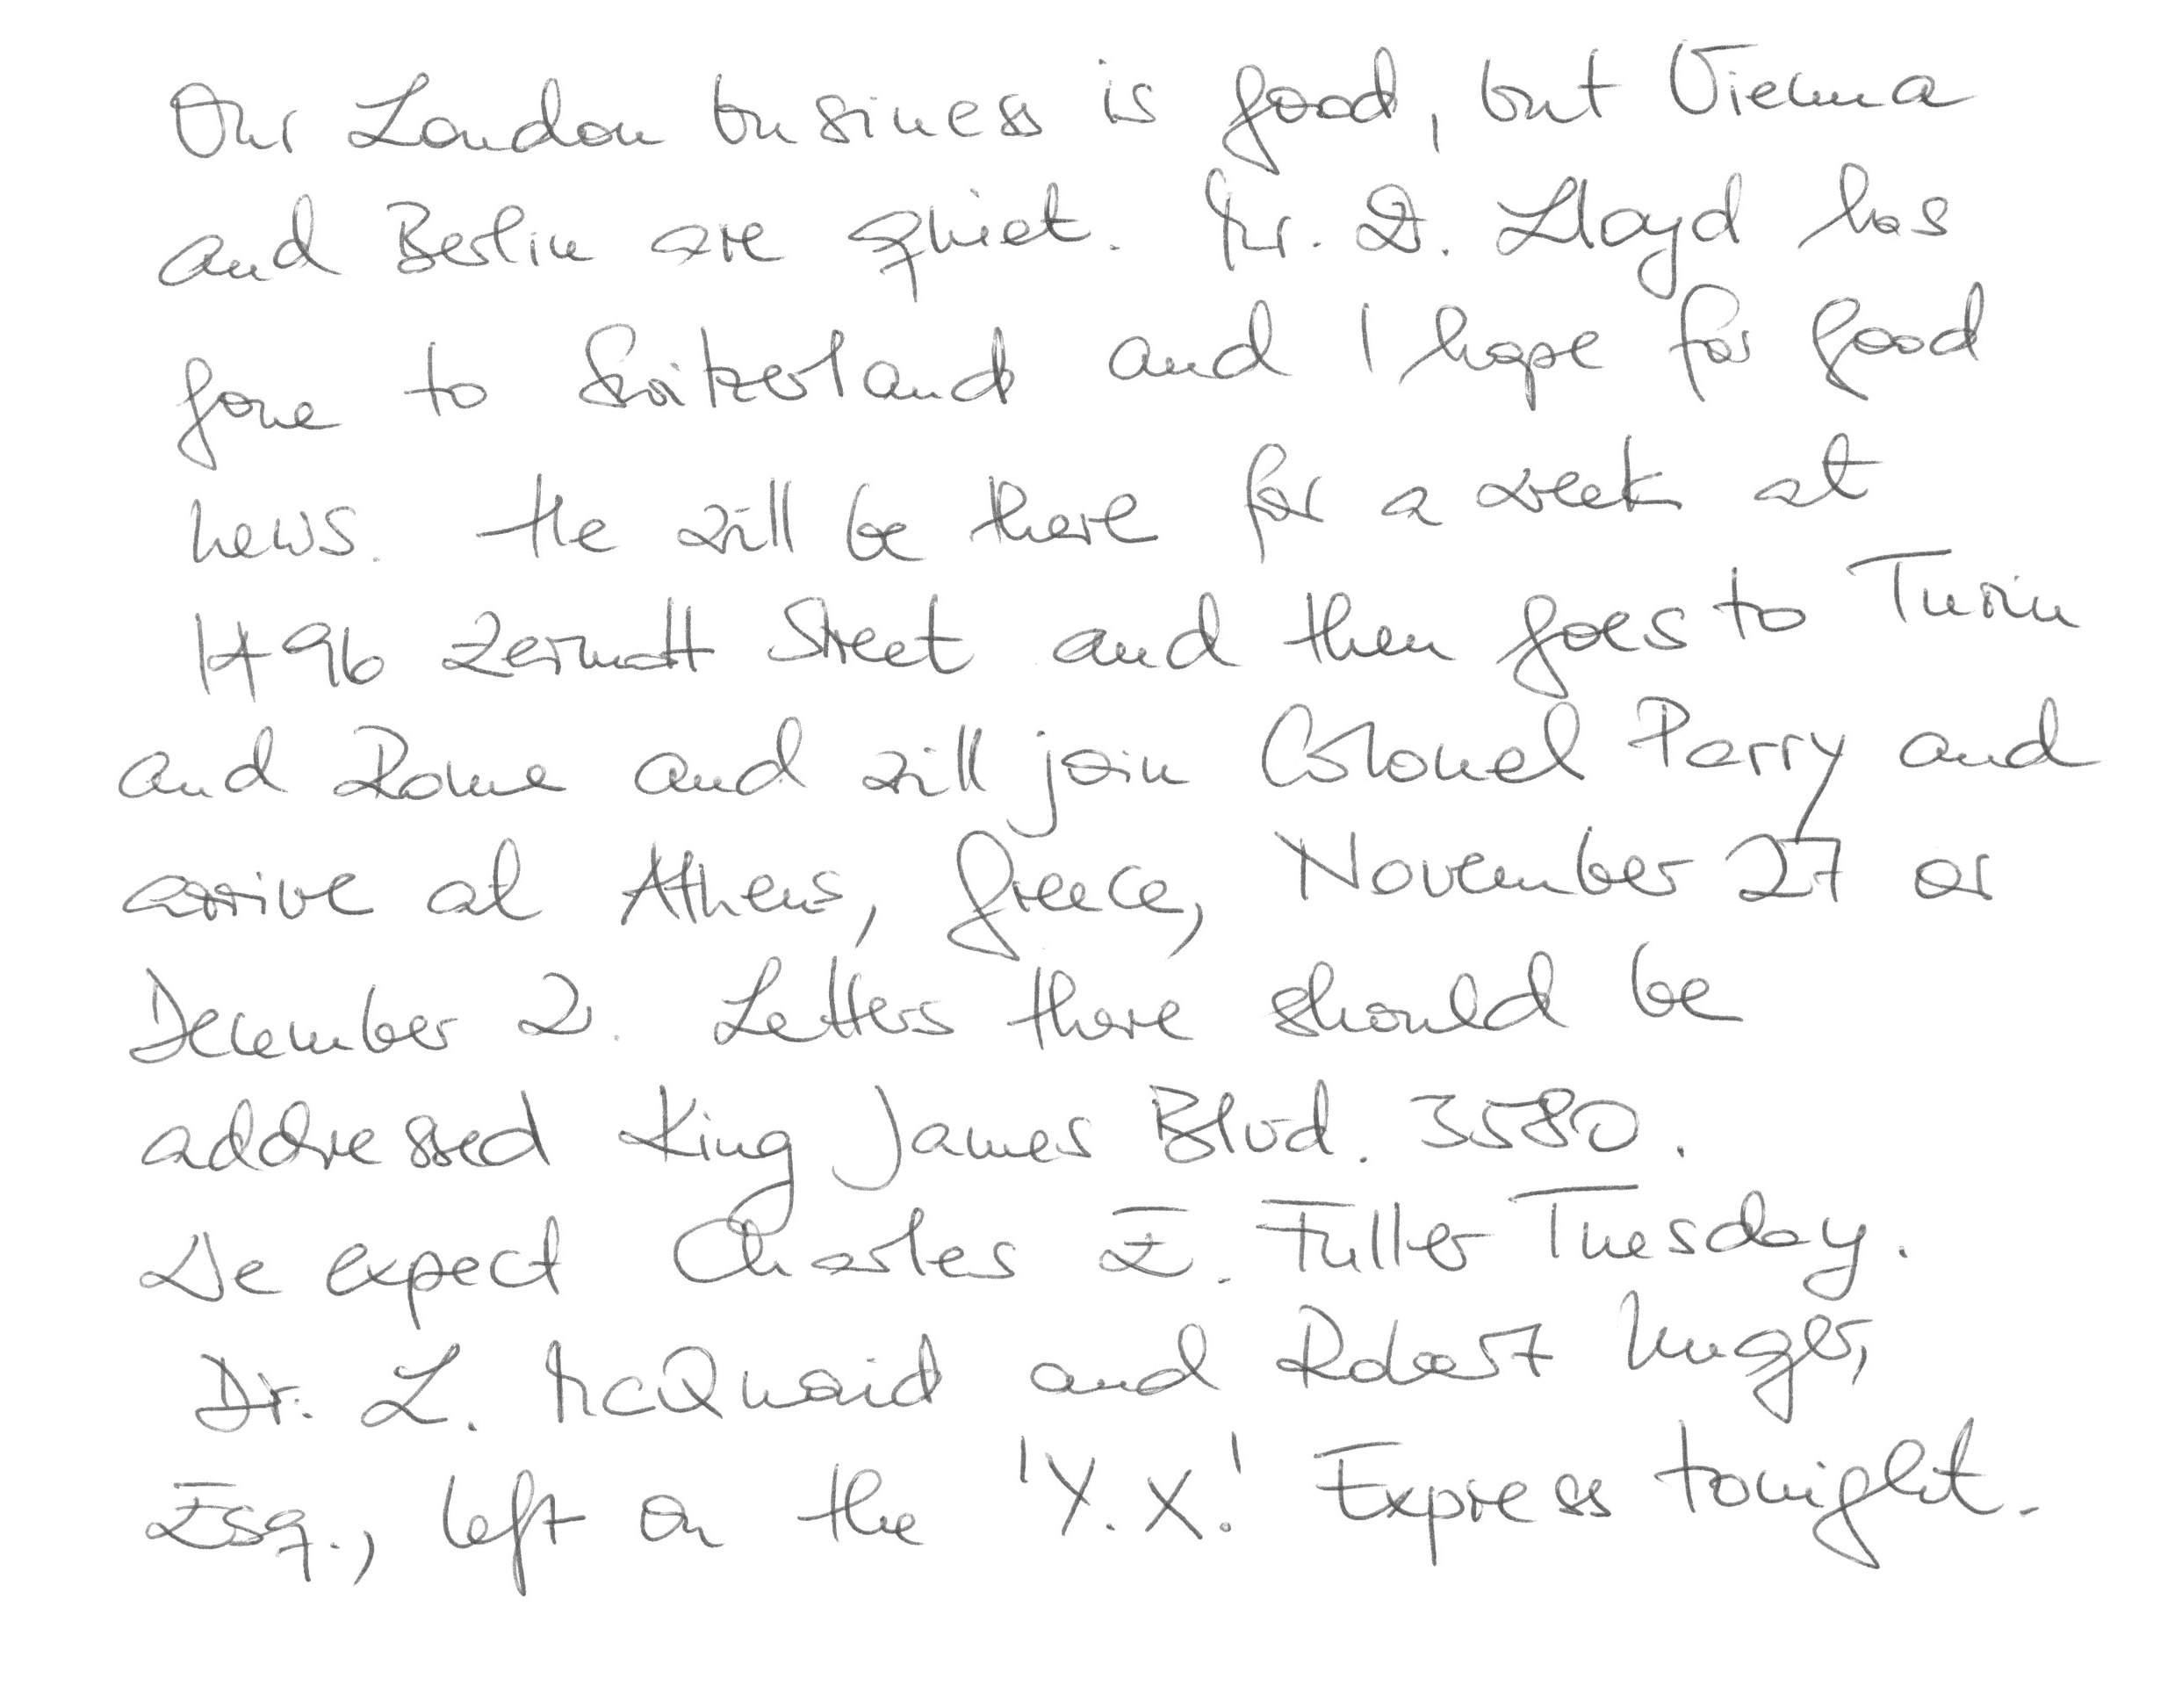 Our London business is good, but Vienna
and Berlin are quiet. Mr. D. Lloyd has
gone to Switzerland and I hope for good
news. He will be there for a week at
1496 Zermatt Street and then goes to Turin
and Rome and will join Colonel Parry and
arrive at Athens, Greece, November 27 or
December 2. Letters there should be
addressed King James Blvd. 3580.
We expect Charles E. Fuller Tuesday.
Dr. L. McQuaid and Robert Unger,
Esq., left on the 'Y.X.' Express tonight.